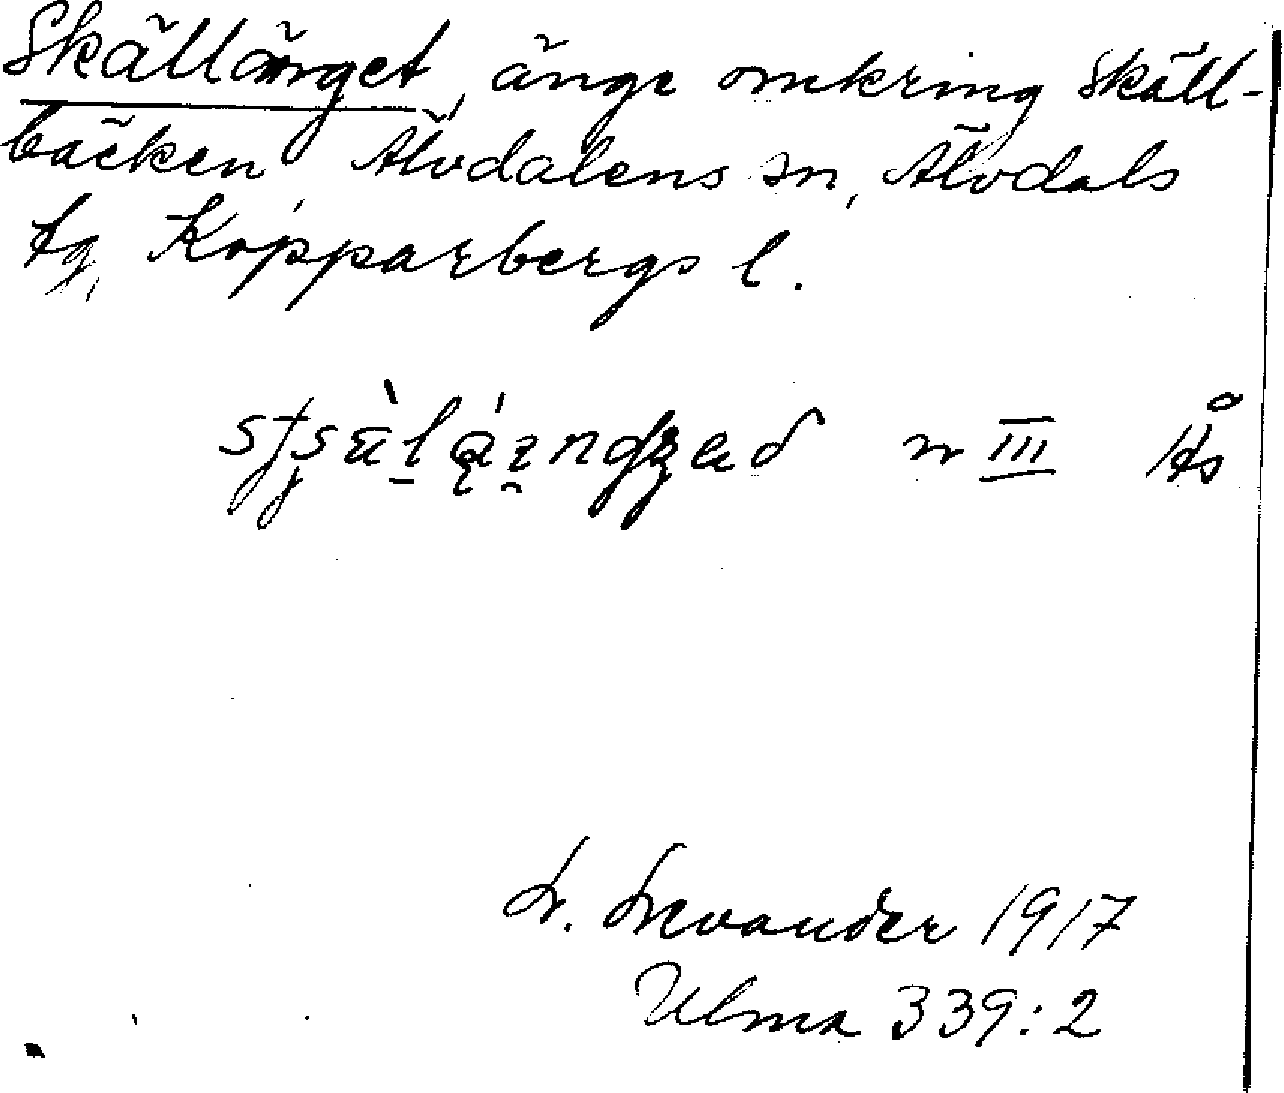 Skällänget, änge omkring Skäll-
bäcken Älvdalens sn, Älvdals
tg, Kopparbergs l.
n III Ås
L. Levander 1917
Ulma 339:2